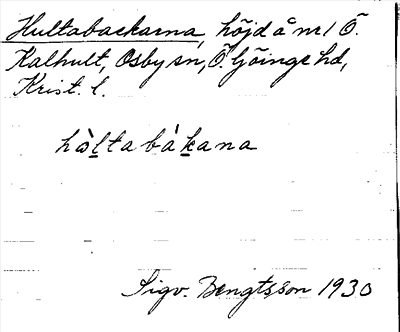 Hultabackarna, höjd å nr 1 Ö.
Kalhult, Osby sn, Ö. Göinge hd,
Krist. l.
hòltabákana
Sigv. Bengtsson 1930